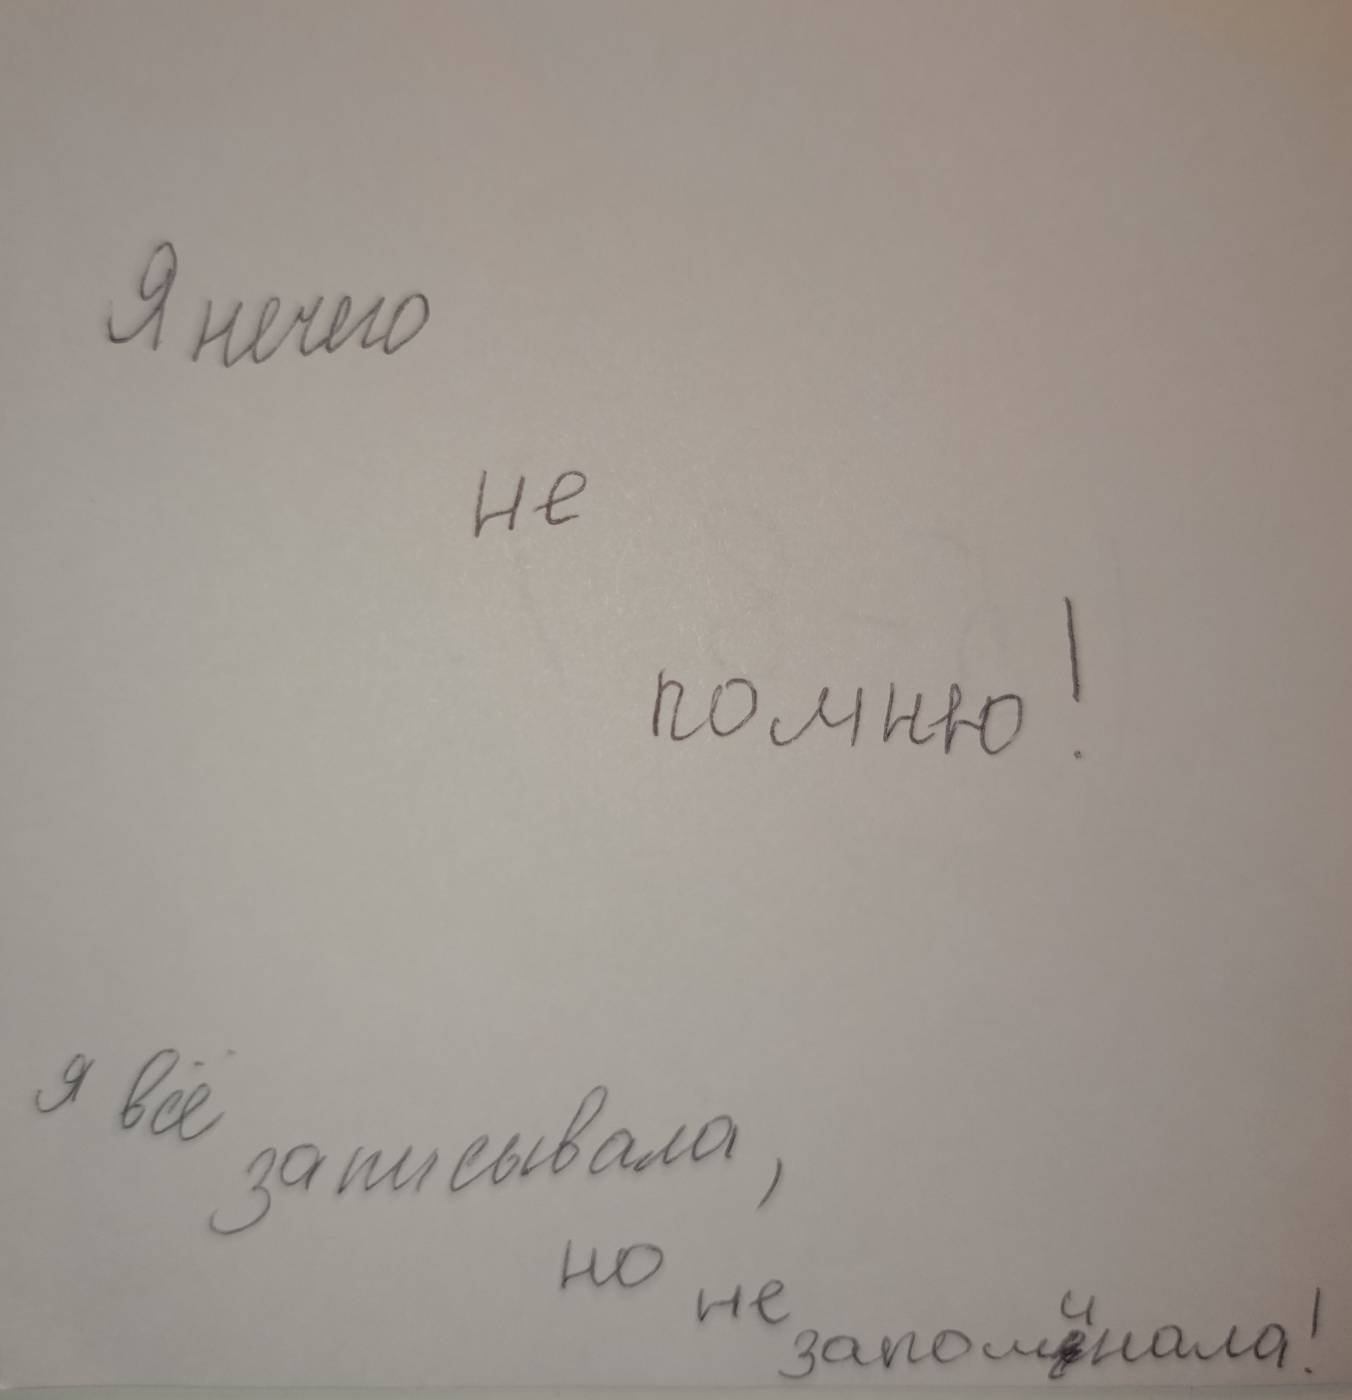 Я нечего
не
помню!
я всё
записывала,
но
не
запоминала!